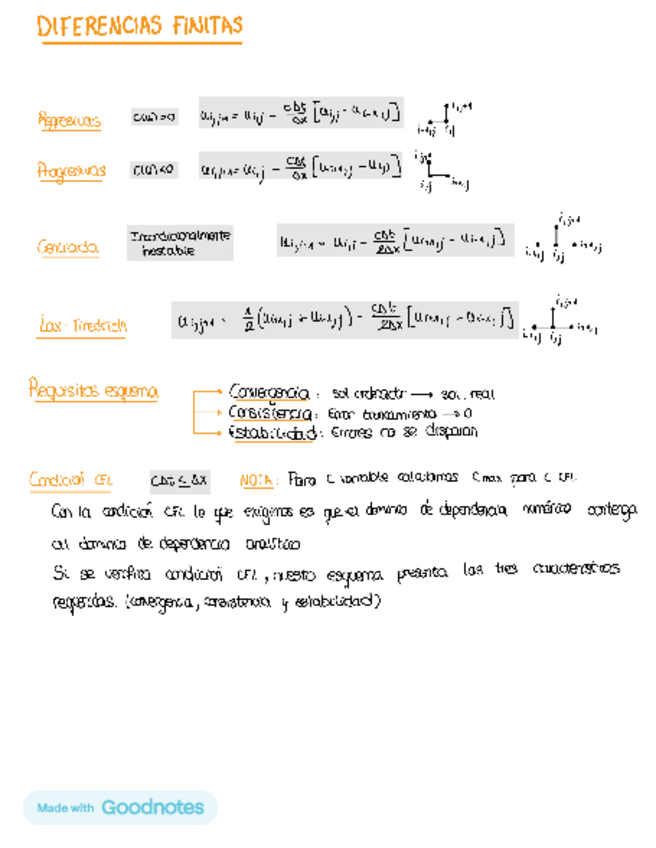 DIFERENCIAS FINITAS
Regresivas c(u)>0 u_{i,j+1} = u_{i,j} - cΔt/Δx [u_{i,j} - u_{i-1,j}] i,j+1
i-1,j i,j
Progresivas c(u)<0 u_{i,j+1} = u_{i,j} - cΔt/Δx [u_{i+1,j} - u_{i,j}] i,j+1
i,j i+1,j
Centrada Incondicionalmente inestable u_{i,j+1} = u_{i,j} - cΔt/2Δx [u_{i+1,j} - u_{i-1,j}] i,j+1
i-1,j i,j i+1,j
Lax-Friedrichs u_{i,j+1} = 1/2 (u_{i+1,j} + u_{i-1,j}) - cΔt/2Δx [u_{i+1,j} - u_{i-1,j}] i,j+1
i-1,j i,j i+1,j
Requisitos esquema
Convergencia: sol. ordenador → sol. real
Consistencia: Error truncamiento → 0
Estabilidad: Errores no se disparan
Condición CFL cΔt ≤ Δx NOTA: Para c variable calculamos c_max para c CFL
Con la condición CFL lo que exigimos es que el dominio de dependencia numérico contenga
al dominio de dependencia analítico
Si se verifica condición CFL, nuestro esquema presenta las tres características
requeridas. (convergencia, consistencia y estabilidad)
Made with Goodnotes